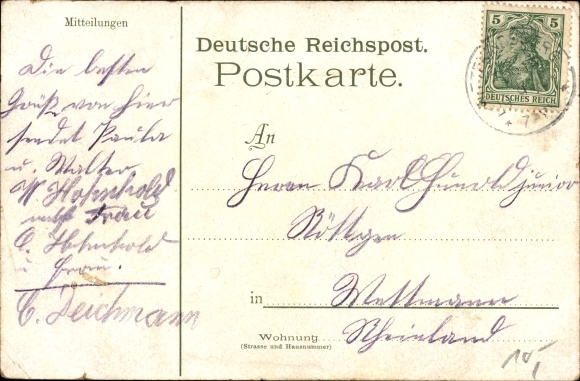 Mitteilungen
Die besten
Grüße von hier
sendet Paula
u. Walter
W. Hohnhold
nebst Frau
C. Hohnhold
u Frau.
C. Deichmann
Deutsche Reichspost.
Postkarte.
5 5
DEUTSCHES REICH
An
Herrn Karl junior
Röttgen
in Wettmann
Wohnung Rheinland
(Strasse und Hausnummer)
10,